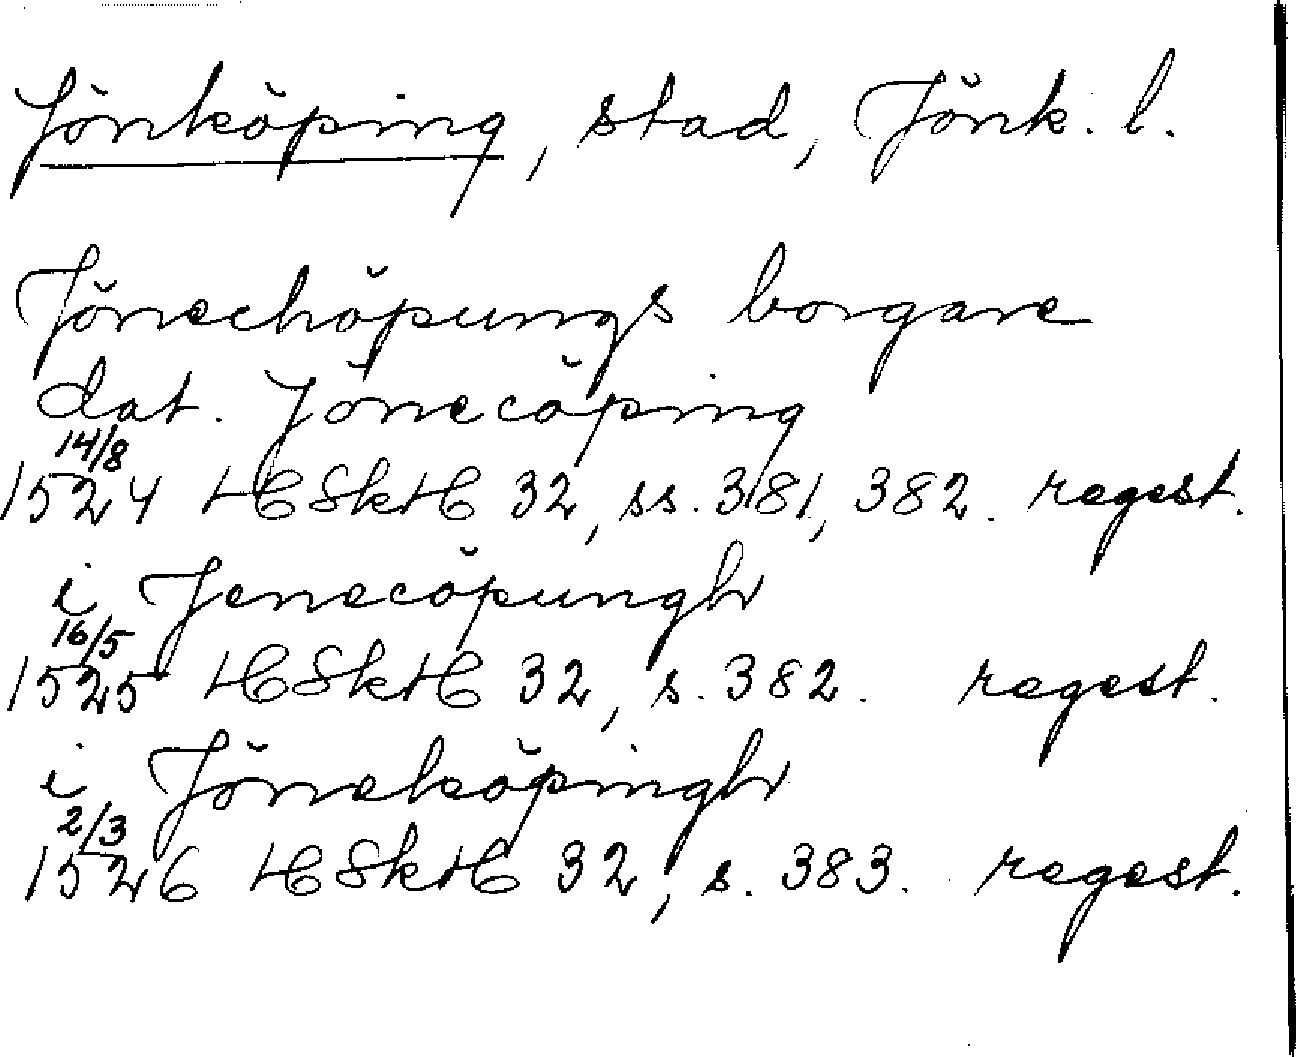 Jönköping, stad, Jönk. l.
Jönechöpungs borgare
dat. Jönecöping
14/8
1524 HSkH 32, ss. 381, 382. regest.
i Jenecöpungh
16/5
1525 HSkH 32, s. 382. regest.
i Jöneköpingh
2/3
1526 HSkH 32, s. 383. regest.